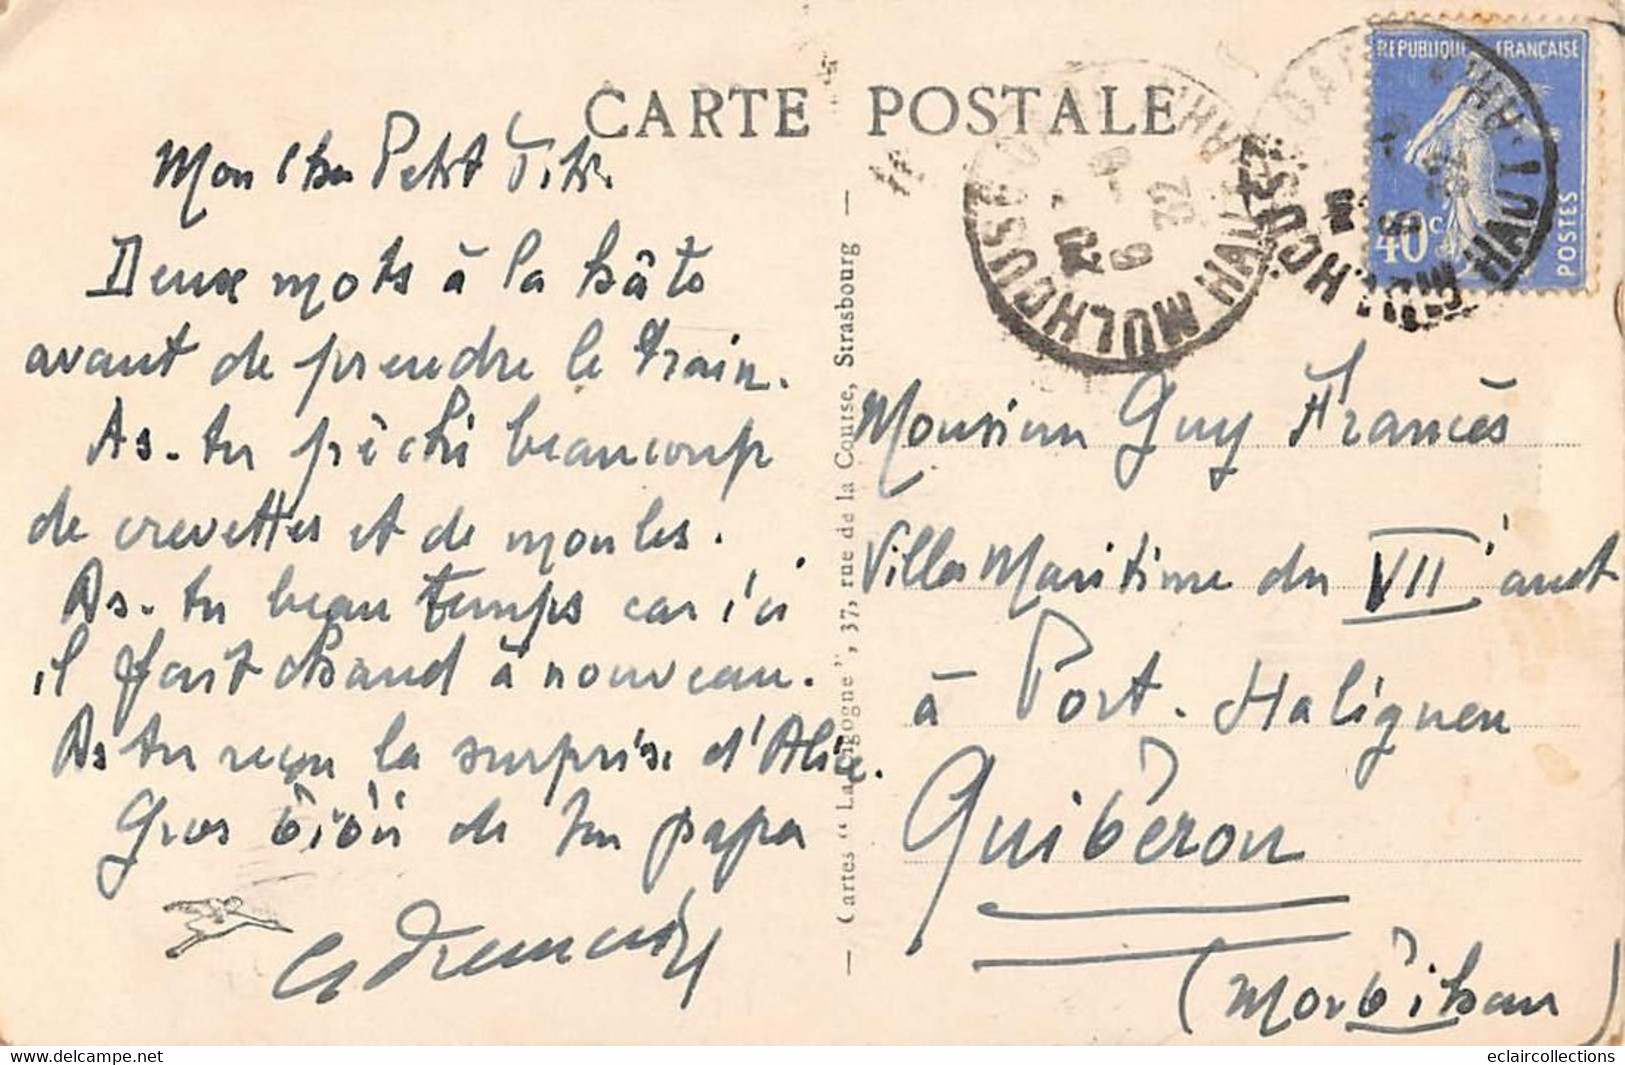 CARTE POSTALE
REPUBLIQUE FRANÇAISE
40c
POSTES
MULHOUSE
HAUT
MULHOUSE
HAUT
Mon cher Petit
Deux mots à la hâte
avant de prendre le train.
As-tu pêché beaucoup
de crevettes et de moules.
As-tu beau temps car ici
il fait chaud à nouveau.
As tu reçu la surprise d'Alice.
Gros bibii de ton papa
Cartes "La Cigogne", 37, rue de la Course, Strasbourg
Monsieur Guy Francès
Villa Maritime du VII
à Port-Haliguen
Quiberon
(Morbihan)
eclaircollections